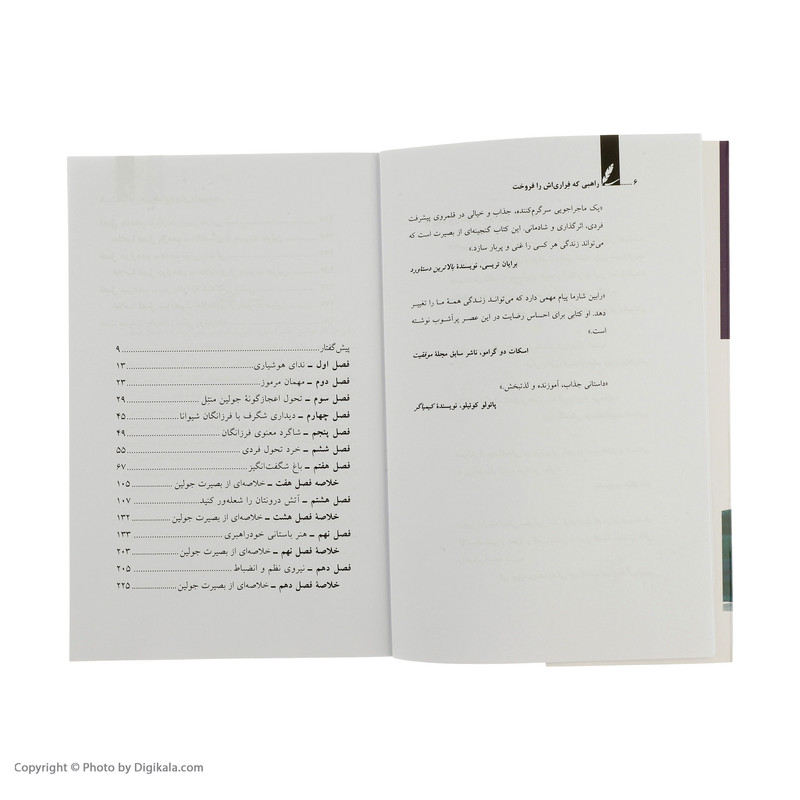 ۶ ........ راهبی که فِراری‌اش را فروخت
«یک ماجراجویی سرگرم‌کننده، جذاب و خیالی در قلمروی پیشرفت
فردی، اثرگذاری و شادمانی. این کتاب گنجینه‌ای از بصیرت است که
می‌تواند زندگی هر کسی را غنی و پربار سازد.»
برایان تریسی، نویسندهٔ بالاترین دستاورد
«رابین شارما پیام مهمی دارد که می‌تواند زندگی همهٔ ما را تغییر
دهد. او کتابی برای احساس رضایت در این عصر پرآشوب نوشته
است.»
اسکات دو گرامو، ناشر سابق مجلهٔ موفقیت
«داستانی جذاب، آموزنده و لذتبخش.»
پائولو کوئیلو، نویسندهٔ کیمیاگر
پیش‌گفتار........ ۹
فصل اول ـ ندای هوشیاری........ ۱۳
فصل دوم ـ مهمان مرموز........ ۲۳
فصل سوم ـ تحول اعجازگونهٔ جولین منتل........ ۲۹
فصل چهارم ـ دیداری شگرف با فرزانگان شیوانا........ ۴۵
فصل پنجم ـ شاگرد معنوی فرزانگان........ ۴۹
فصل ششم ـ خرد تحول فردی........ ۵۵
فصل هفتم ـ باغ شگفت‌انگیز........ ۶۷
خلاصه فصل هفت ـ خلاصه‌ای از بصیرت جولین........ ۱۰۵
فصل هشتم ـ آتش درونتان را شعله‌ور کنید........ ۱۰۷
خلاصهٔ فصل هشت ـ خلاصه‌ای از بصیرت جولین........ ۱۳۲
فصل نهم ـ هنر باستانی خودراهبری........ ۱۳۳
خلاصهٔ فصل نهم ـ خلاصه‌ای از بصیرت جولین........ ۲۰۳
فصل دهم ـ نیروی نظم و انضباط........ ۲۰۵
خلاصهٔ فصل دهم ـ خلاصه‌ای از بصیرت جولین........ ۲۲۵
Copyright © Photo by Digikala.com